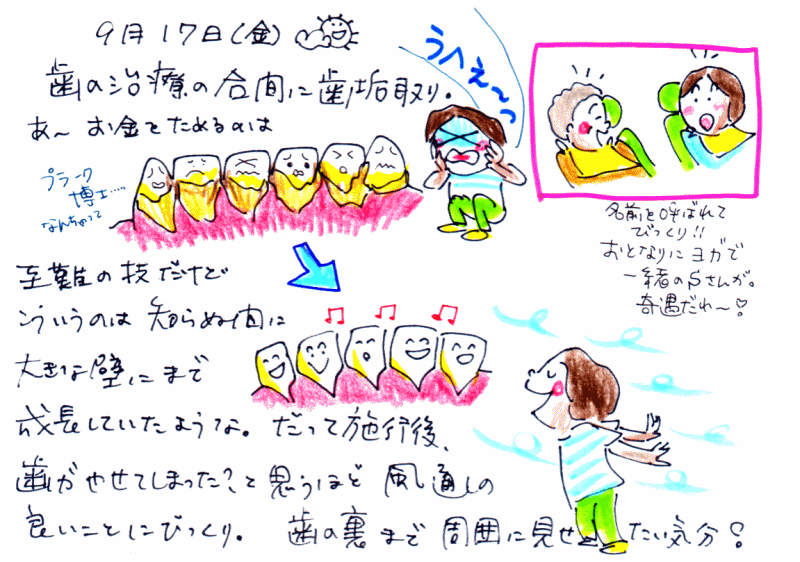 9月17日(金)
歯の治療の合間に歯垢取り。
うへぇ〜っ
あ〜お金をためるのは
プラーク
博士....
なんちゃって
名前を呼ばれて
びっくり!!
おとなりにヨガで
一緒のSさんが。
奇遇だわ〜!
至難の技だけど
こういうのは知らぬ間に
大きな壁にまで
成長していたような。だって施術後、
歯がやせてしまった?と思うほど風通しの
良いことにびっくり。歯の裏まで周囲に見せたい気分!